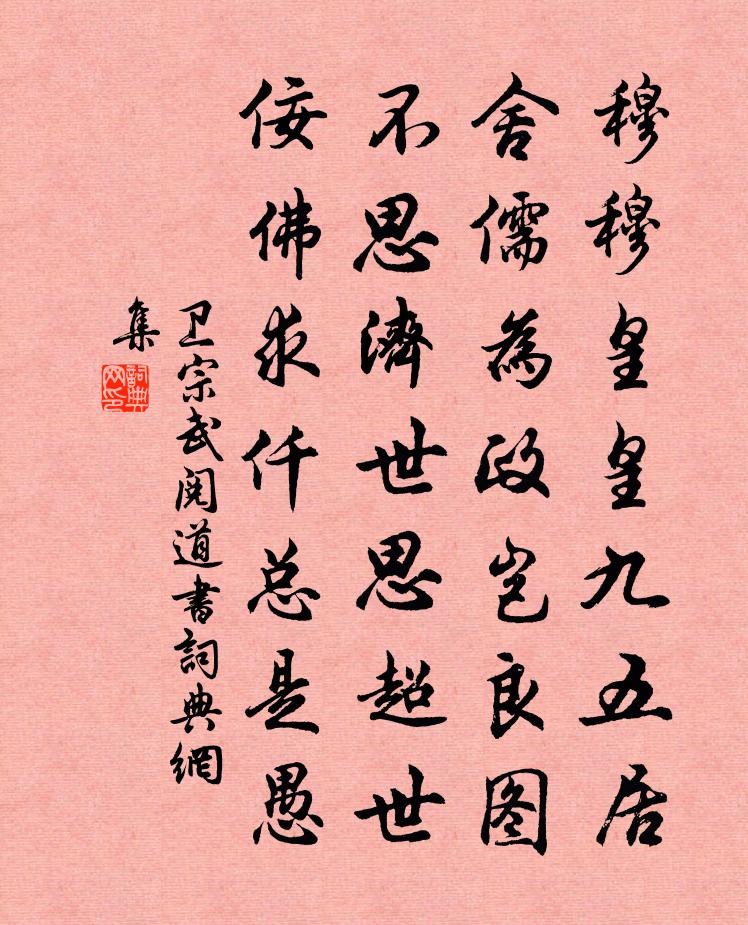 穆穆皇皇九五居
舍儒為政豈良图
不思濟世思超世
佞佛求仟总是愚
卫宗武阅道書詞典網
集
詞典
网印